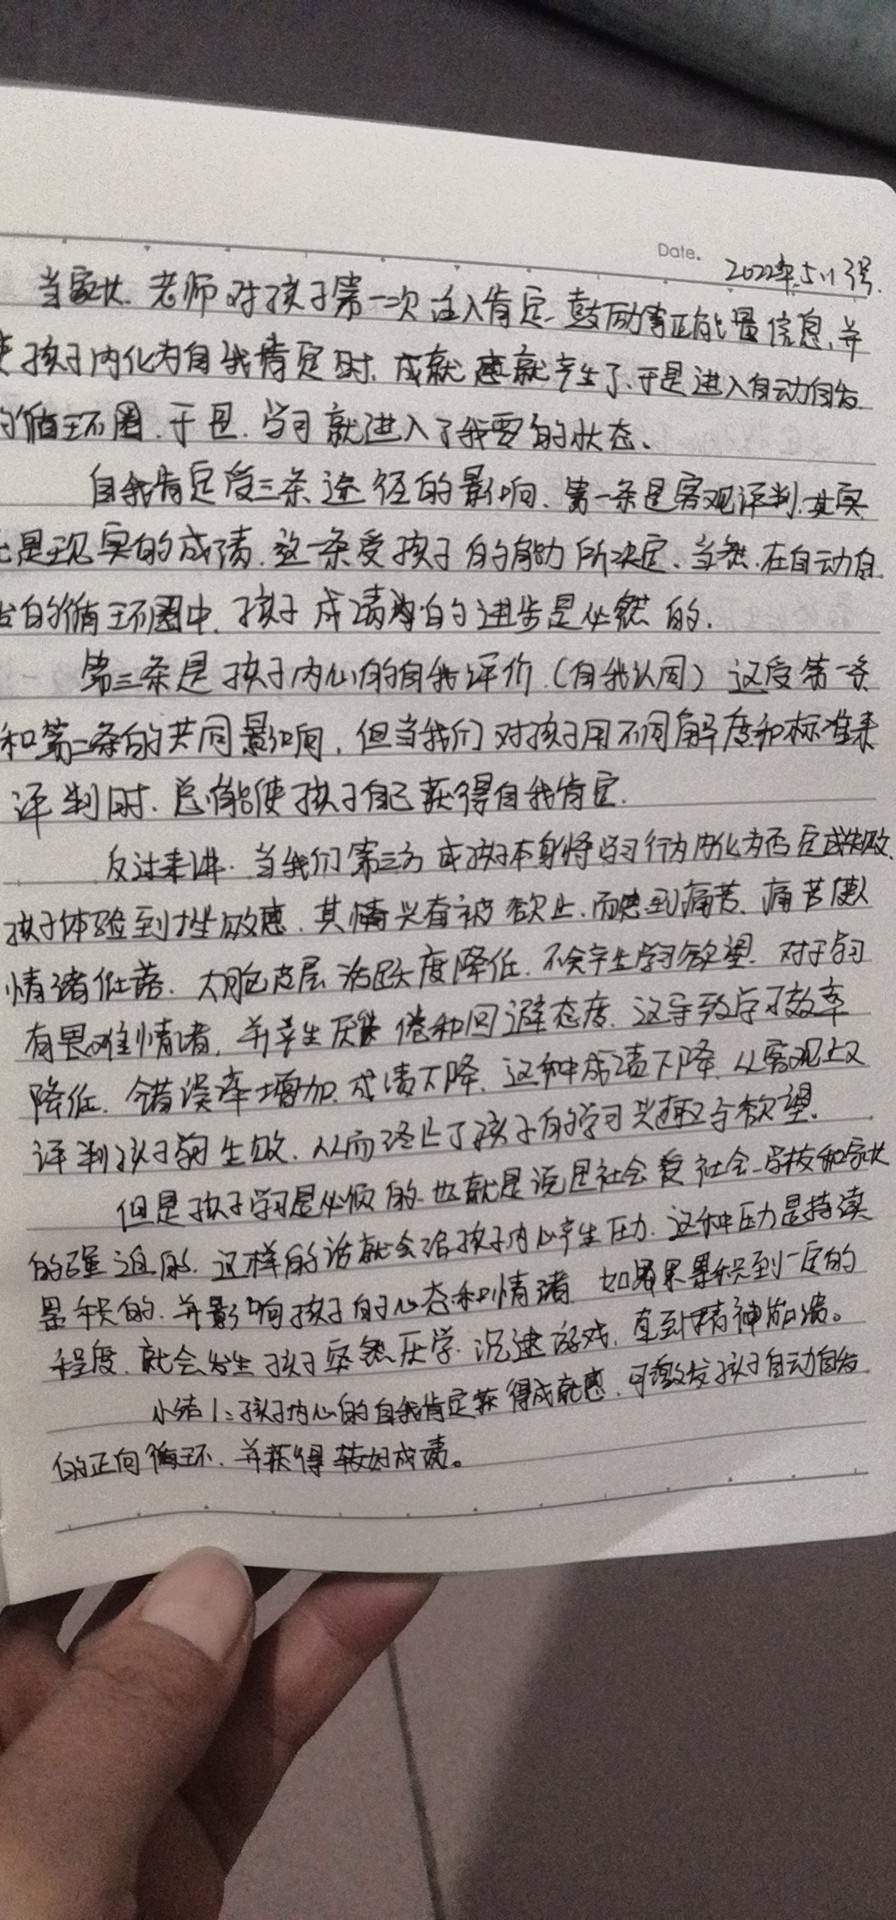 Date. 2022年5.13号.
当家长. 老师对孩子第一次注入肯定、鼓励等正能量信息、并
孩子内化为自我肯定时. 成就感就产生了、于是进入自动自发
的循环圈. 于是. 学习就进入了我要的状态、
自我肯定受三条途径的影响、第一条是客观评判. 其实
是现实的成绩. 这一条受孩子的能力所决定、当然. 在自动自
发的循环圈中. 孩子成绩的进步是必然的.
第三条是孩子内心的自我评价.(自我认同) 这受第一条
和第二条的共同影响, 但当我们对孩子用不同角度和标准来
评判时. 总能使孩子自己获得自我肯定.
反过来讲. 当我们第三方或孩子本身将学习行为内化为否定或失败.
孩子体验到挫败感. 其情兴奋被抑止. 而感到痛苦. 痛苦使人
情绪低落. 大脑皮层活跃度降低. 不会产生学习欲望. 对于学习
有畏难情绪, 并产生厌倦和回避态度. 这导致学习效率
降低. 错误率增加. 成绩下降. 这种成绩下降. 从客观上又
评判孩子的失败. 从而终止了孩子的学习兴趣与欲望.
但是孩子学习是必须的. 也就是说是社会受社会、学校和家长
的强迫的. 这样的话就会给孩子内心产生压力. 这种压力是持续
累积的. 并影响孩子的心态和情绪 如果累积到一定的
程度. 就会发生孩子突然厌学. 沉迷游戏. 直到精神崩溃。
小结1:孩子内心的自我肯定获得成就感. 可激发孩子自动自发
的正向循环. 并获得较好成绩。